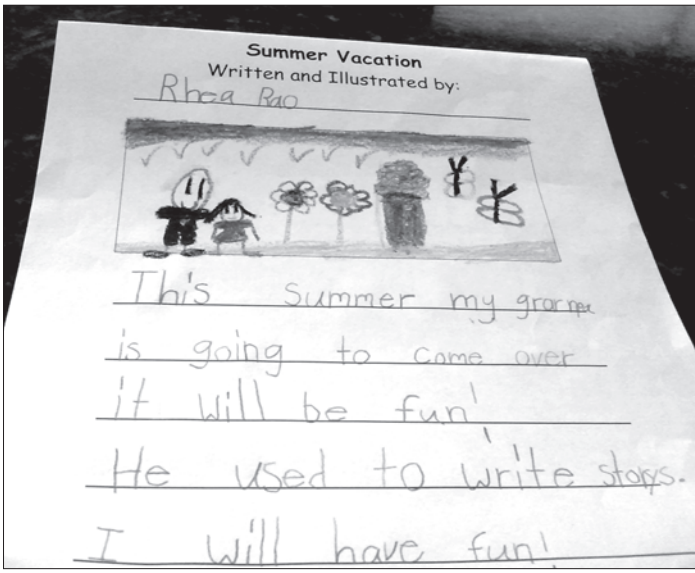 Summer Vacation
Written and Illustrated by:
Rhea Rao
This summer my
is going to come over
it will be fun!
He used to write storys.
I will have fun!